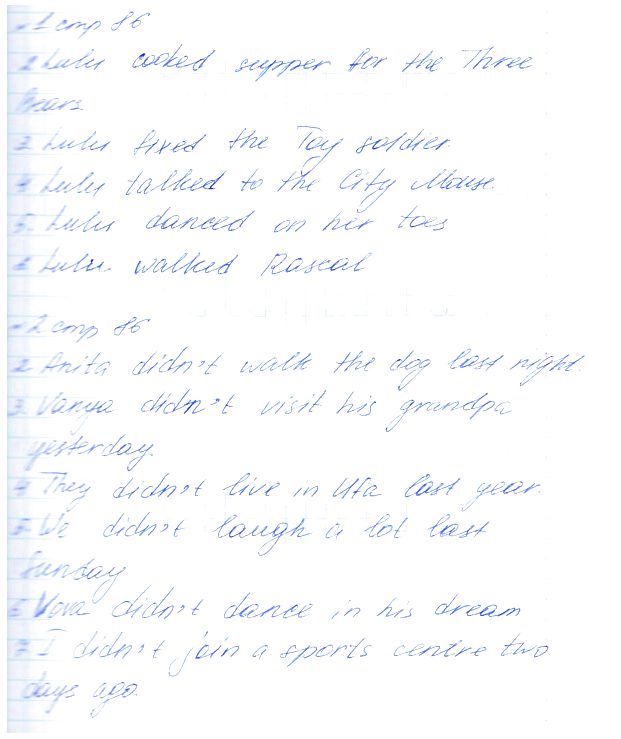 №1 стр 86
2 Lulu cooked supper for the Three
Bears
3 Lulu fixed the Toy soldier.
4 Lulu talked to the City Mouse.
5. Lulu danced on her toes
6 Lulu walked Rascal
№2 стр 86
2 Anita didn't walk the dog last night.
3 Vanya didn't visit his grandpa
yesterday.
4 They didn't live in Ufa last year.
5 We didn't laugh a lot last
Sunday
6 Vova didn't dance in his dream
7 I didn't join a sports centre two
days ago.